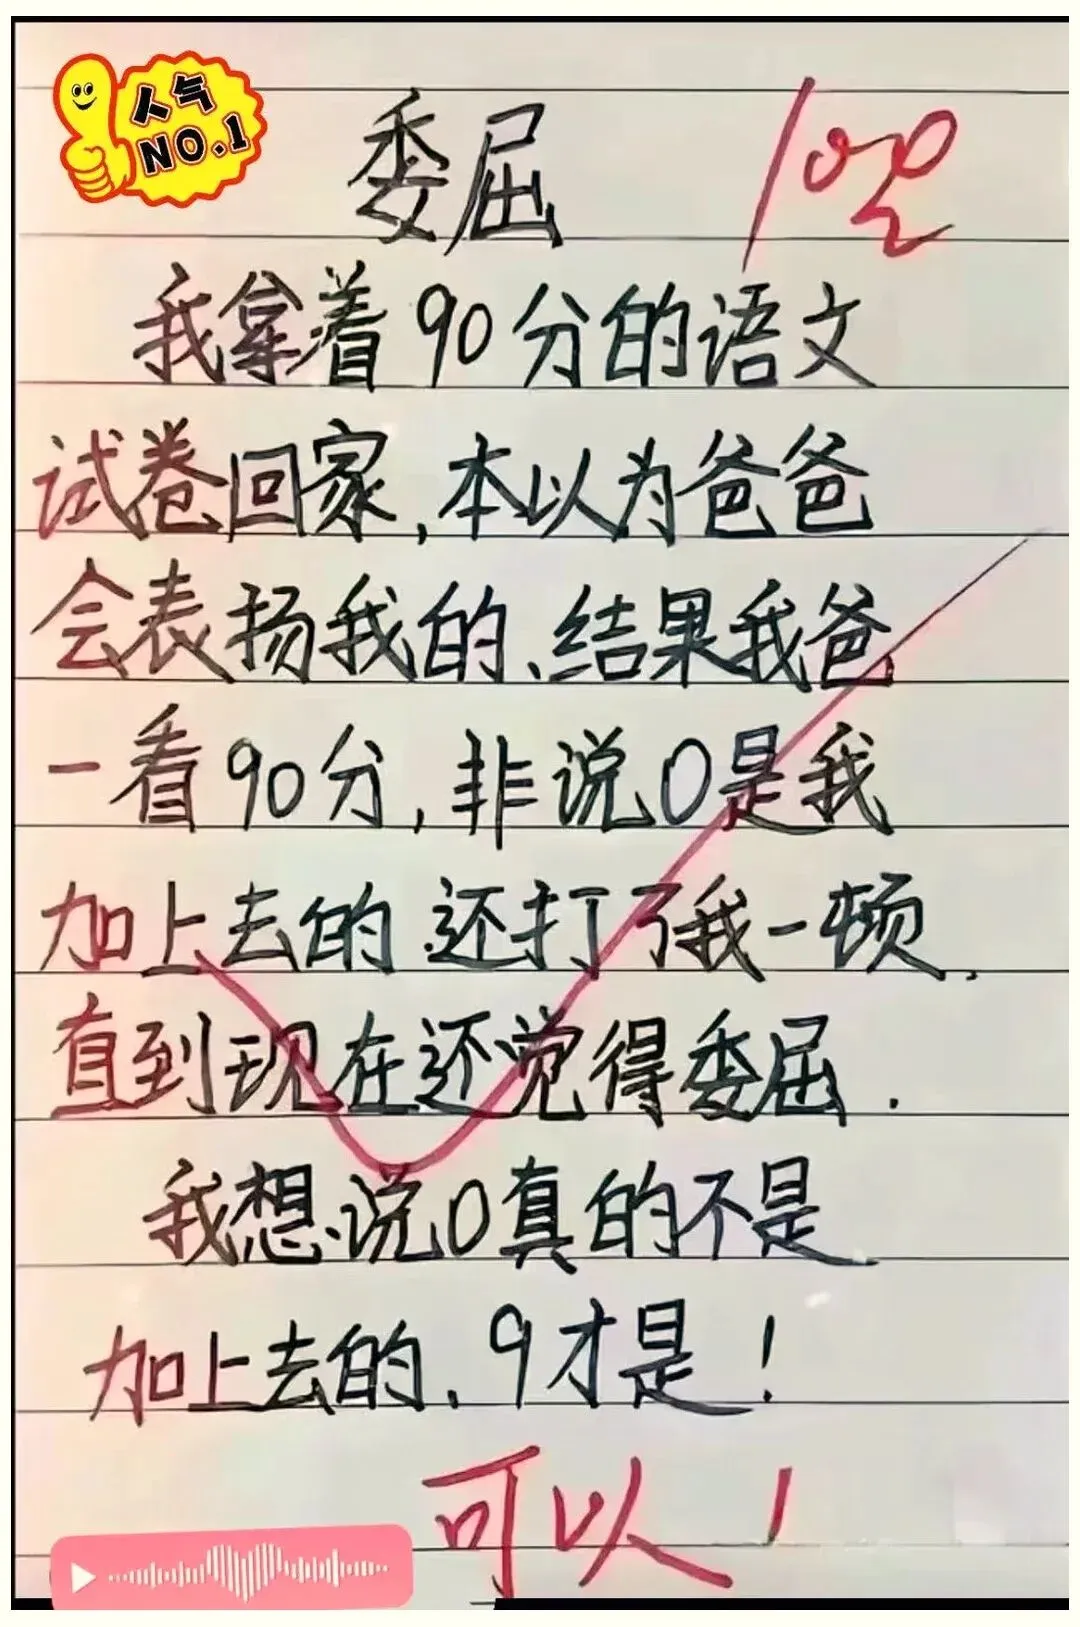 人气
NO.1
委屈
100
我拿着90分的语文
试卷回家,本以为爸爸
会表扬我的、结果我爸
一看90分,非说0是我
加上去的.还打了我一顿.
直到现在还觉得委屈.
我想说0真的不是
加上去的、9才是!
可以!